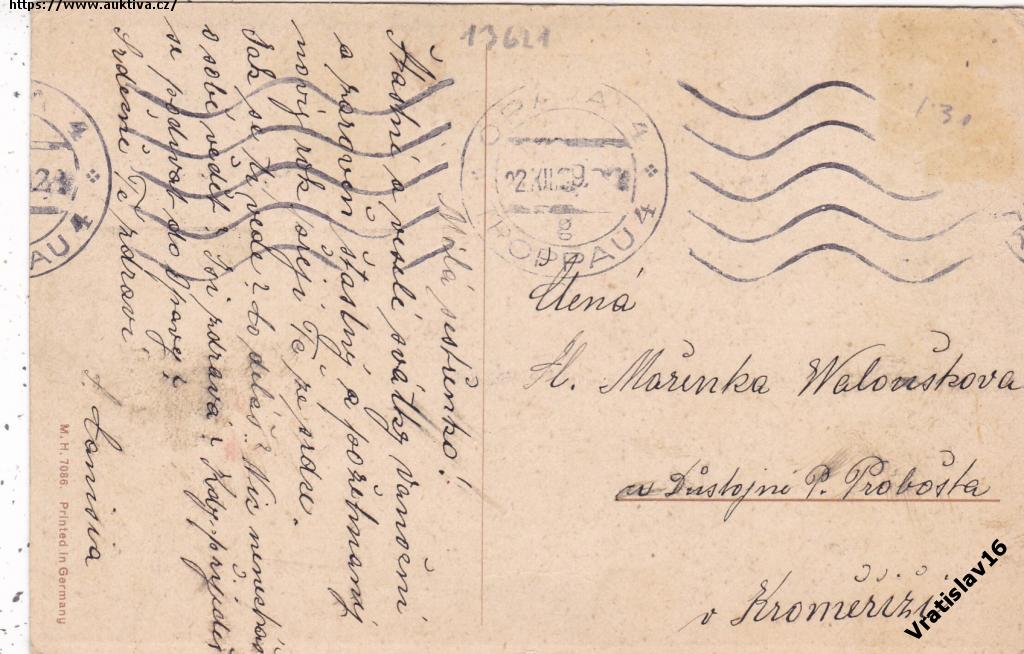 https://www.auktiva.cz/
13621
Milá sestřenko!
Šťastné a veselé svátky vánoční
a zároveň šťastný a požehnaný
nový rok přeji Ti ze srdce.
Jak se ti vede? Co děláš? Nic nenecháš
o sobě vědět? Jsi zdráva? Kdy přijedeš
se podívat do Opavy?
Srdečně Tě zdraví
M. H. 7086. Printed in Germany
OPAVA 4
TROPPAU 4
8
Ctěná
Sl. Mařenka Walouškova
u Důstojné P. Probošta
v Kroměříži
Vratislav16